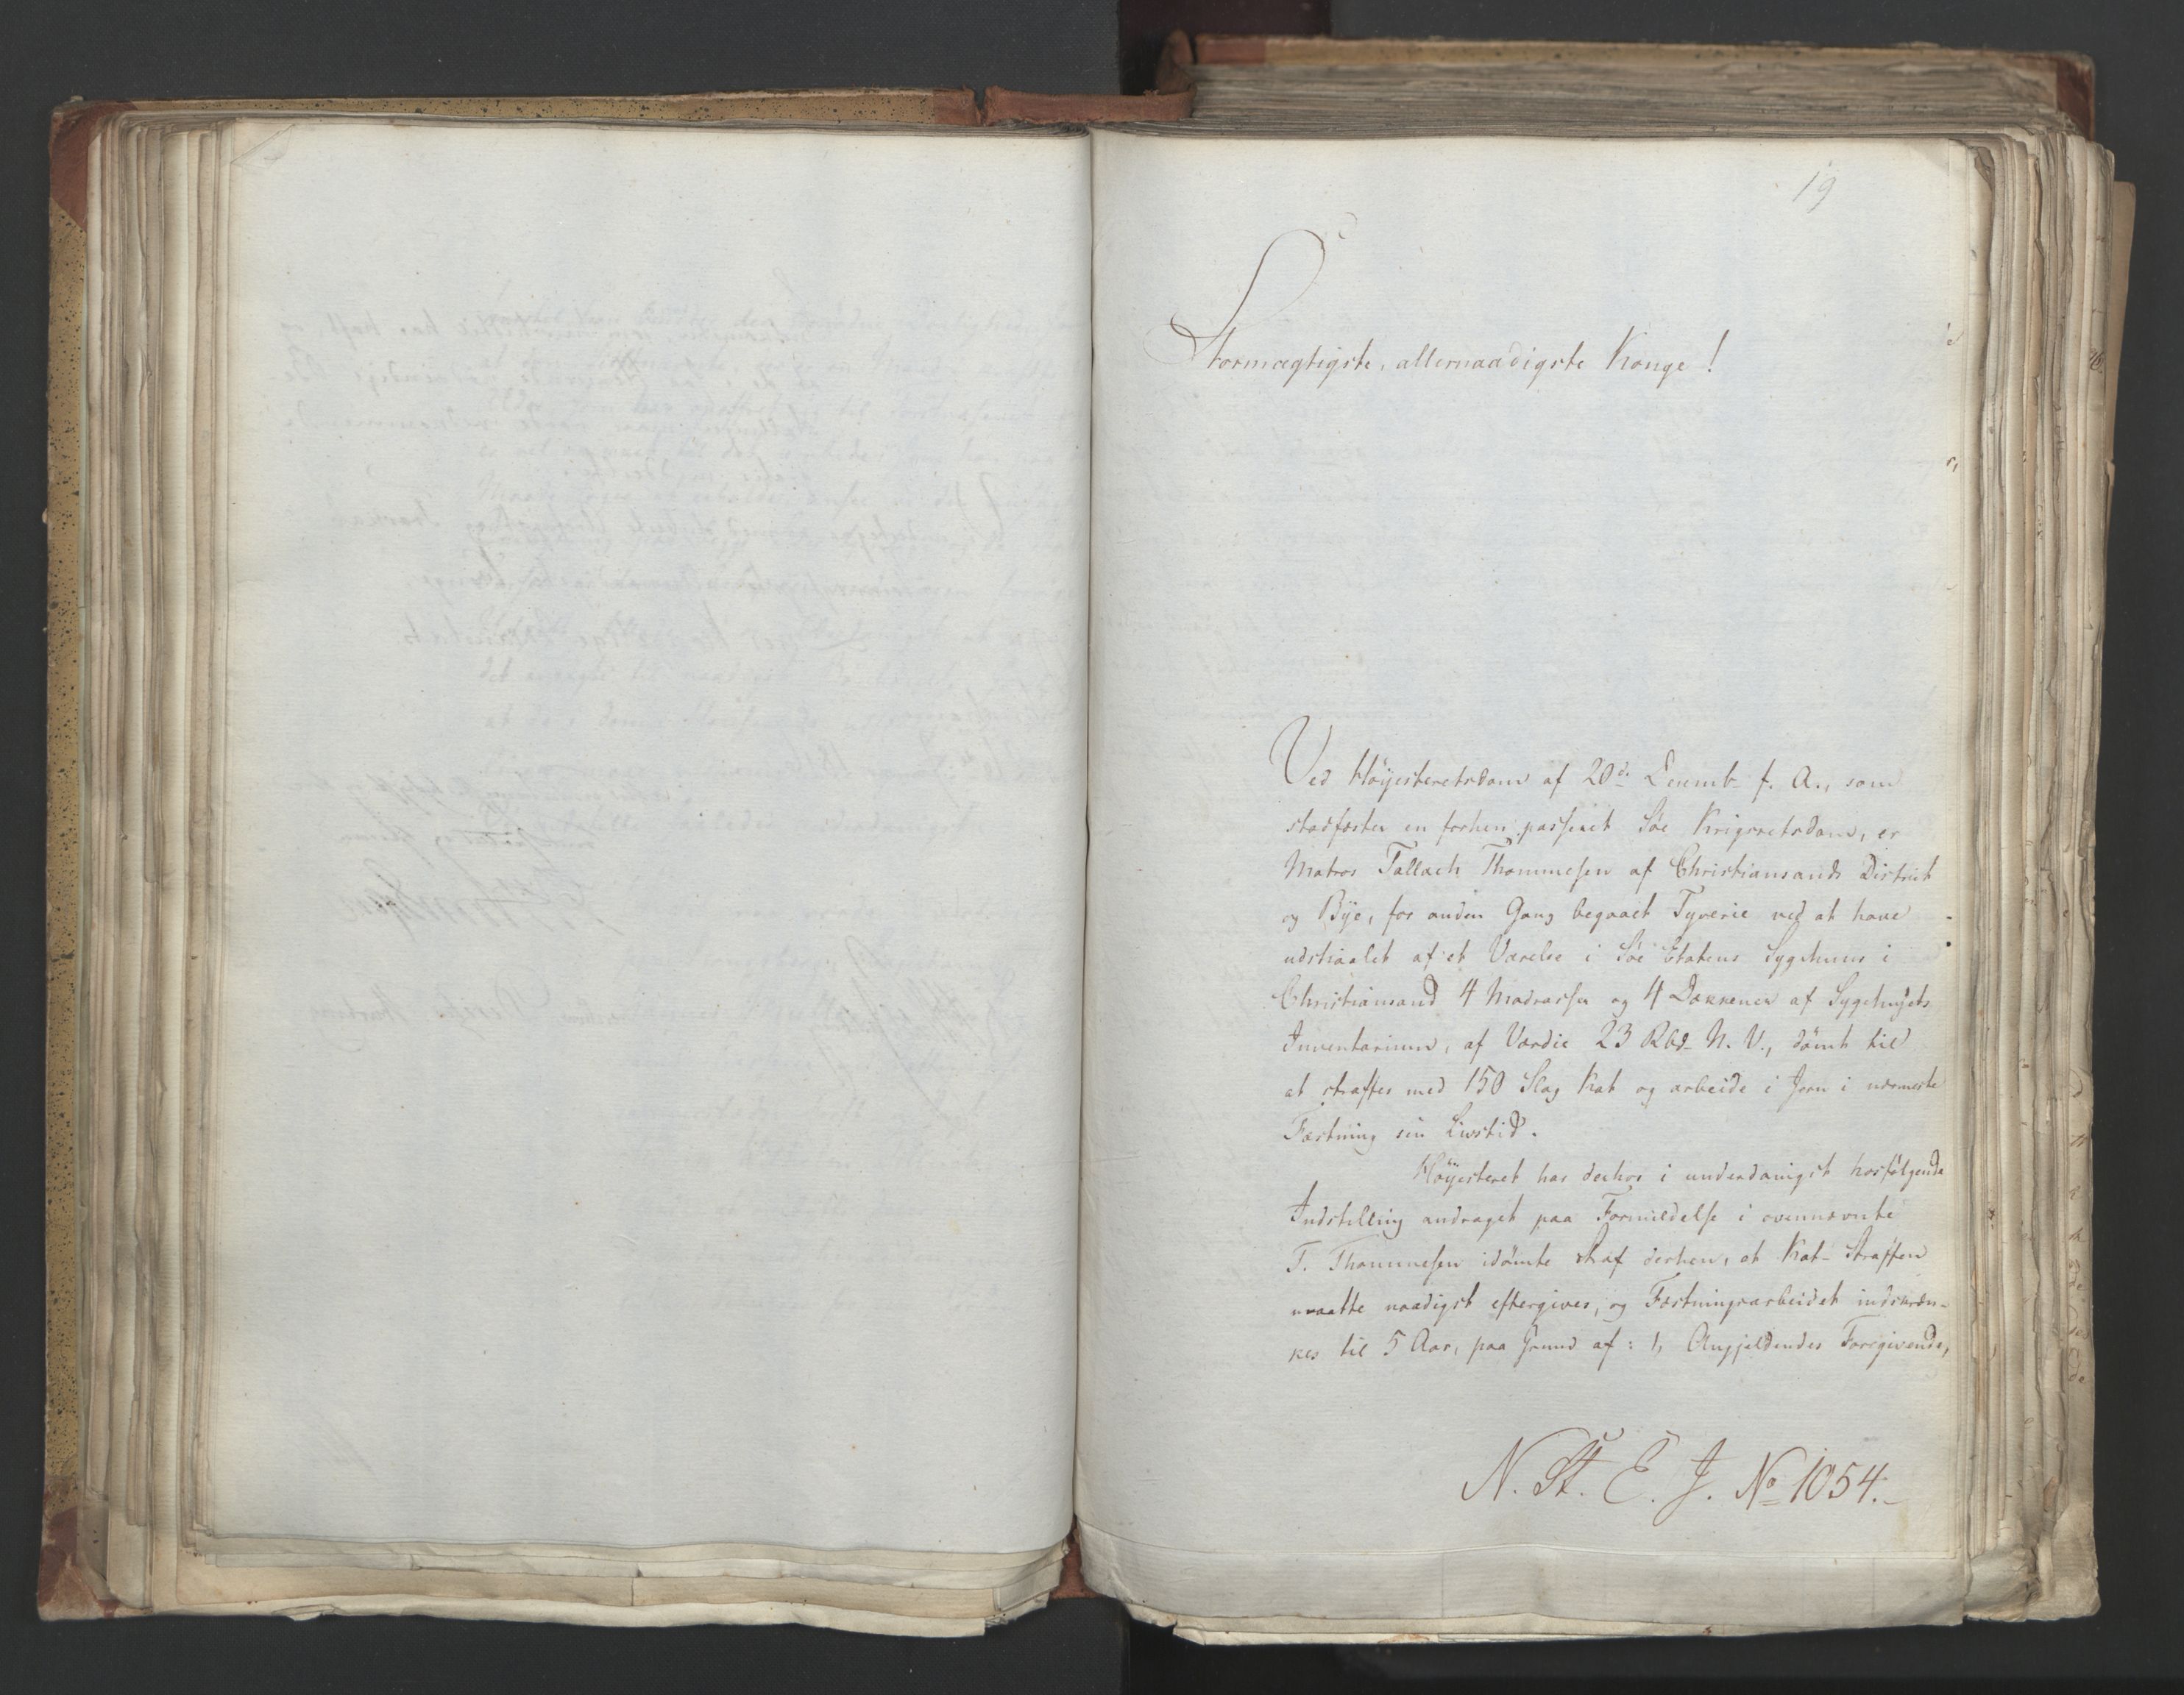 19
Stormægtigste, allernaadigste Konge!
Ved Høyesteretsdom af 20de Decemb. f. A., som
stadfæster en forhen passeret Søe Krigsretsdom, er
Matros Tallach Thommesen af Christiansands District
og Bÿe, for anden Gang begaaet Tyverie ved at have
udstiaalet af et Værelse i Søe Etatens Sygehuus i
Christiansand 4 Madrasser og 4 Dækkener af Sygehuusets
Inventarium, af Værdie 23 Rbd. N. V., dømt til
at straffes med 150 Slag Kat og arbeide i Jern i nærmeste
Fæstning sin Livstid.
Høyesteret har derhos i underdanigst hosfølgende
Indstilling andraget paa Formildelse i ovennævnte
T. Thommesen idømte Straf derhen, at Kat-Straffen
maatte naadigst eftergives, og Fæstningsarbeidet indskræn-
kes til 5 Aar, paa Grund af: 1, Angjeldendes Foregivende,
N. St. E. J. No 1054.